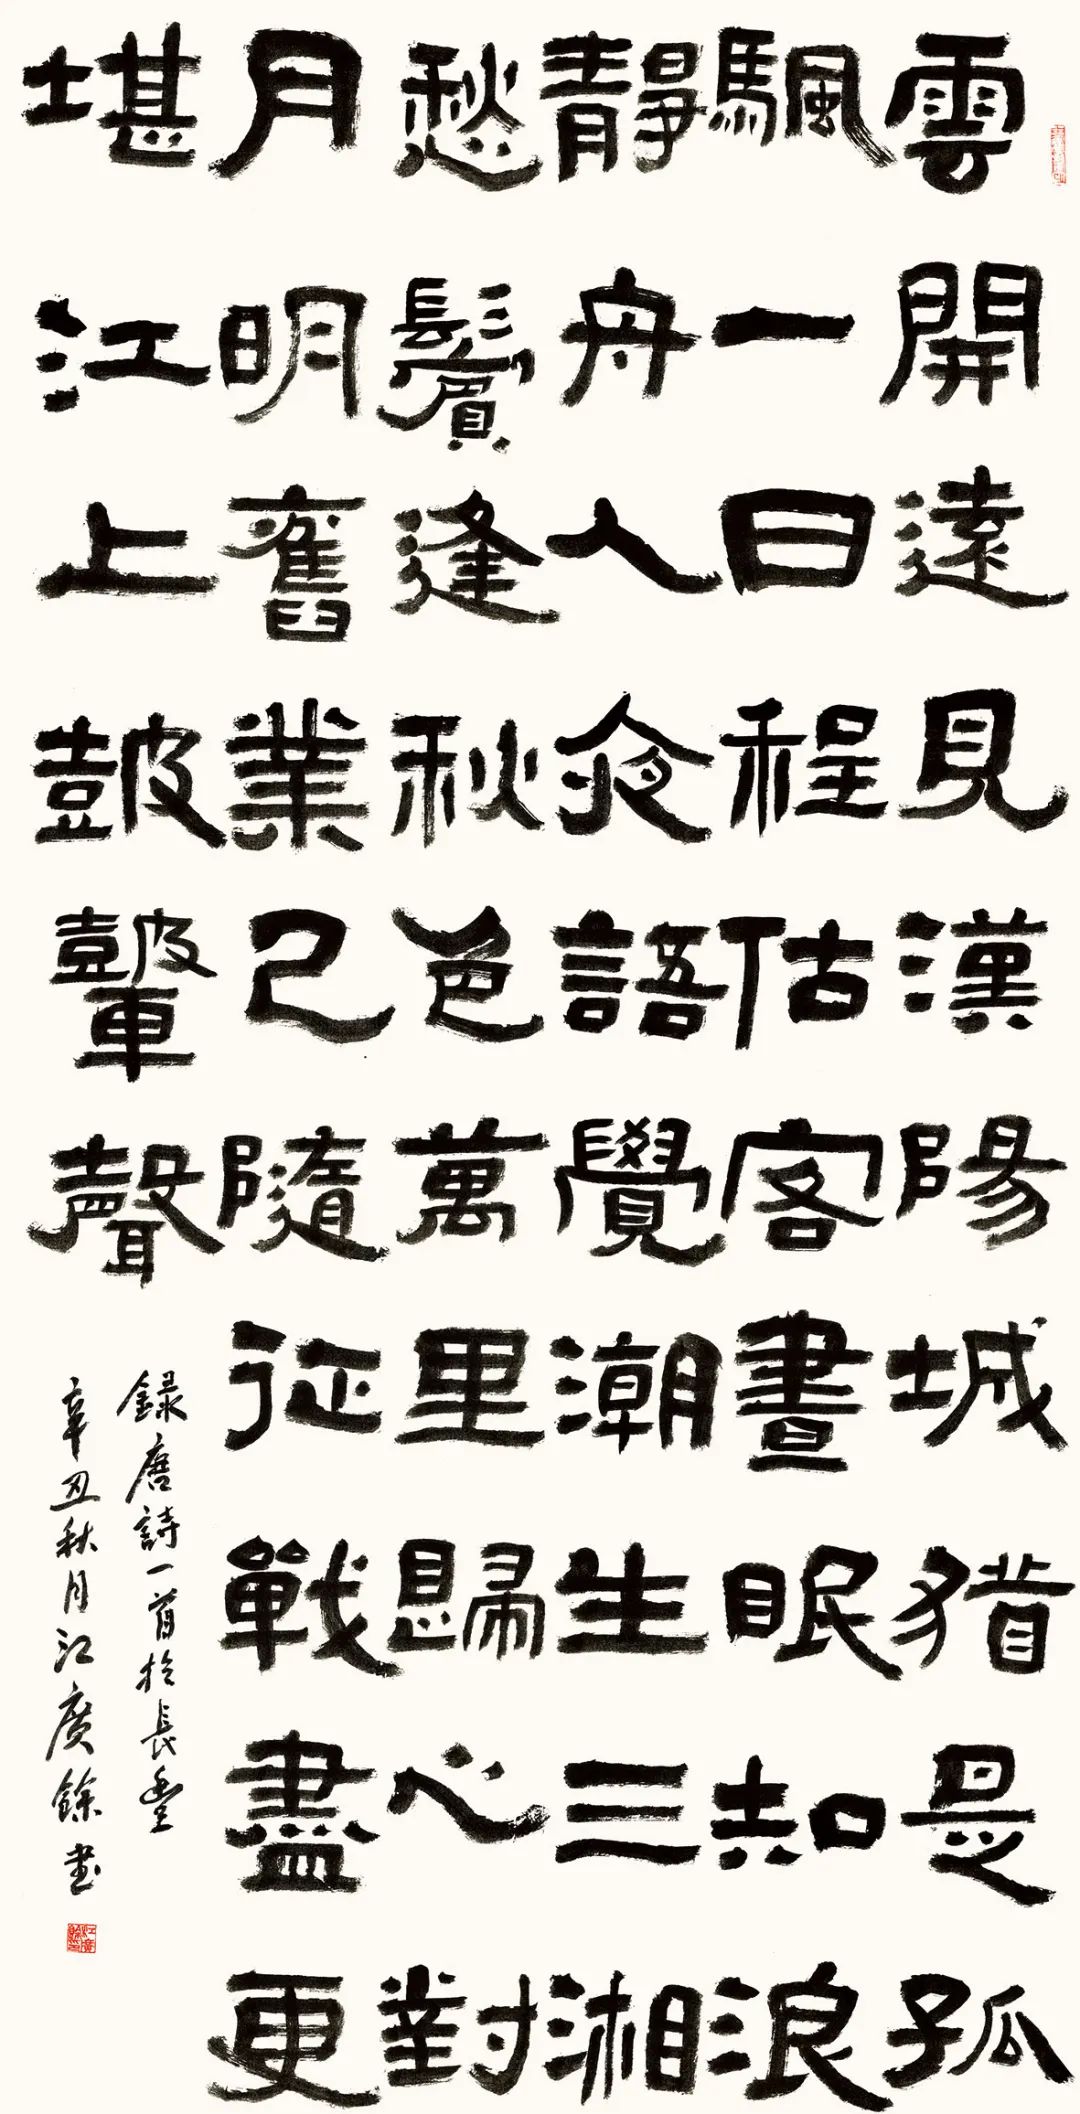 雲開遠見漢陽城猶是孤
颿一日程估客晝眠知浪
靜舟人夜語覺潮生三湘
愁鬢逢秋色萬里歸心對
月明舊業已隨征戰盡更
堪江上皷鼙聲
錄唐詩一首於長
辛丑秋月江廣餘書